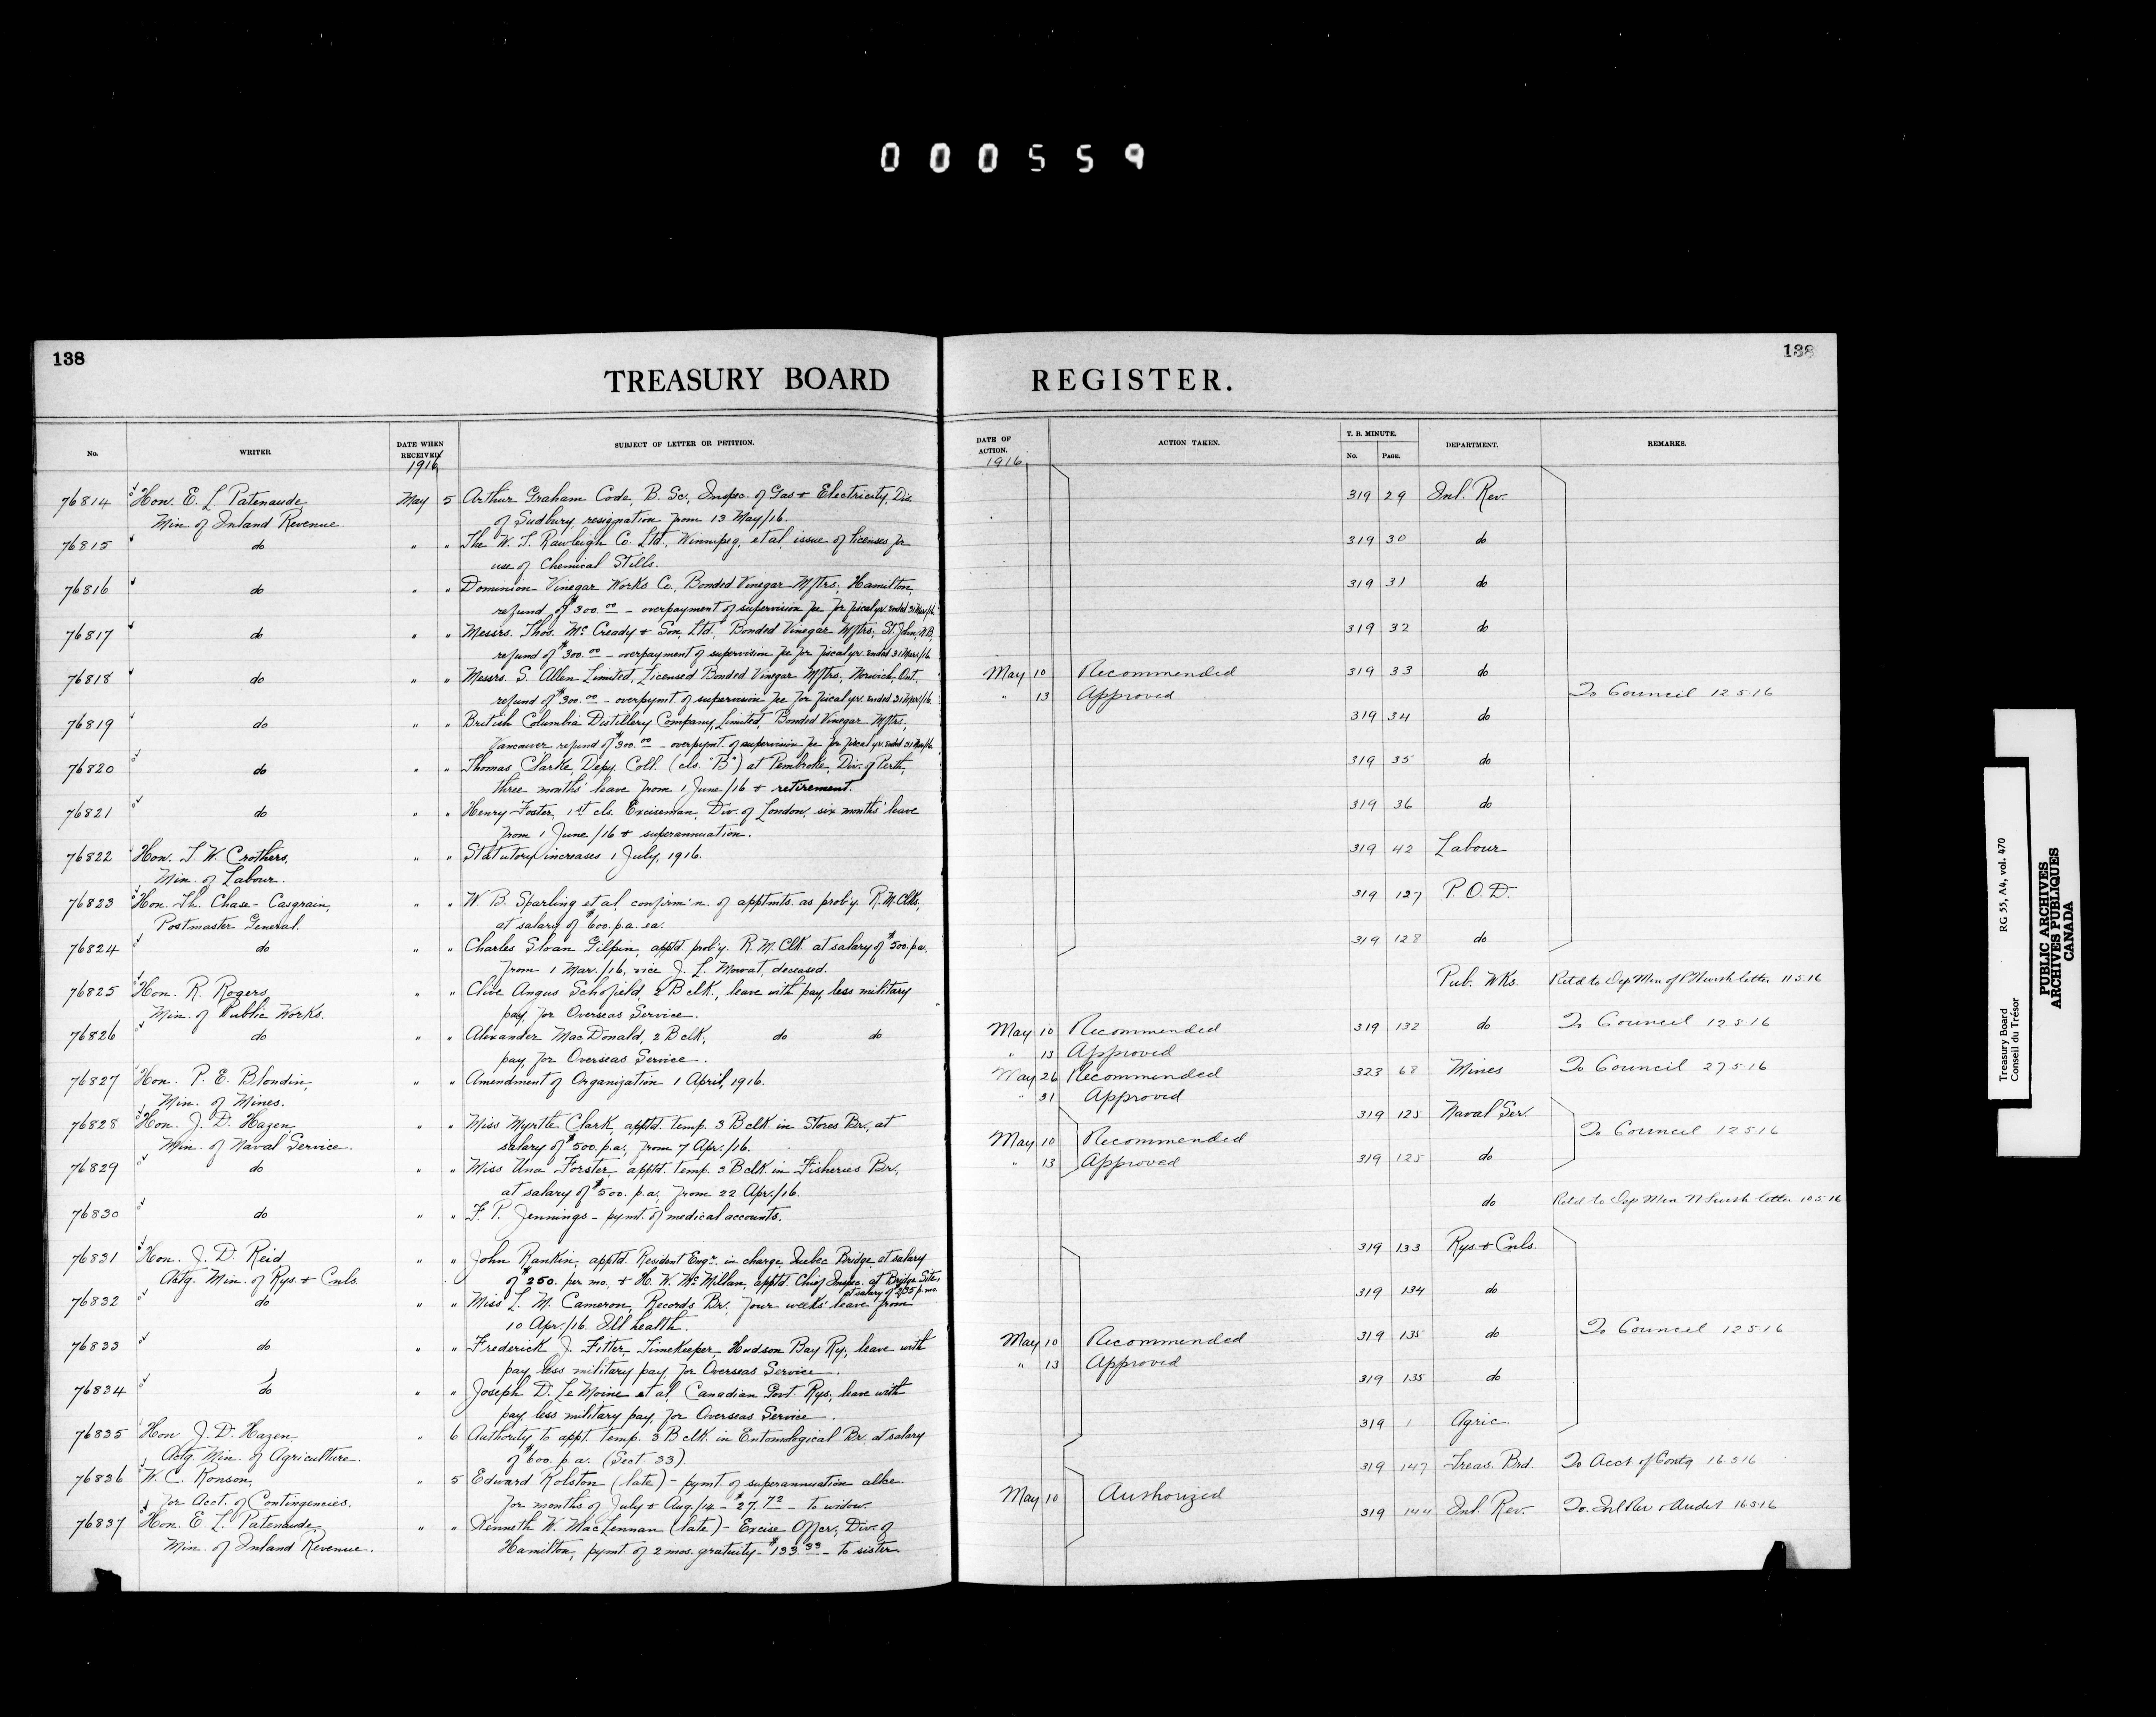 000559
138
138
TREASURY BOARD REGISTER.
No.
WRITER
DATE WHEN RECEIVED
1916
SUBJECT OF LETTER OR PETITION.
DATE OF ACTION.
1916
ACTION TAKEN.
T. B. MINUTE.
No.
PAGE.
DEPARTMENT.
REMARKS.
76814 Hon. E. L. Patenaude, May 5 Arthur Graham Code, B. Sc., Inspec. of Gas & Electricity, Dis. 319 29 Inl. Rev.
Min. of Inland Revenue. of Sudbury, resignation from 13 May/16.
76815 do " " The W. T. Rawleigh Co. Ltd., Winnipeg, et al, issue of licenses for 319 30 do
use of Chemical Stills.
76816 do " " Dominion Vinegar Works Co., Bonded Vinegar Mftrs., Hamilton, 319 31 do
refund of $300.00 - overpayment of supervision fee for fiscal yr. ended 31 Mar/16.
76817 do " " Messrs. Thos. McCready & Son, Ltd., Bonded Vinegar Mftrs., St. John, N.B., 319 32 do
refund of $300.00 - overpayment of supervision fee for fiscal yr. ended 31 Mar/16.
76818 do " " Messrs. S. Allen Limited, Licensed Bonded Vinegar Mftrs., Norwich, Ont., May 10 Recommended 319 33 do
refund of $300.00 - overpymt. of supervision fee for fiscal yr. ended 31 Mar/16. " 13 Approved To Council 12 5 16
76819 do " " British Columbia Distillery Company, Limited, Bonded Vinegar Mftrs., 319 34 do
Vancouver refund of $300.00 - overpymt. of supervision fee for fiscal yr. ended 31 Mar/16.
76820 do " " Thomas Clarke, Depy. Coll. (cls. "B") at Pembroke, Div. of Perth, 319 35 do
three months' leave from 1 June/16 & retirement.
76821 do " " Henry Foster, 1st cls. Exciseman, Div. of London, six months' leave 319 36 do
from 1 June/16 & superannuation.
76822 Hon. T. W. Crothers, " " Statutory increases 1 July, 1916. 319 42 Labour
Min. of Labour.
76823 Hon. Th. Chase-Casgrain, " " W. B. Sparling et al, confirm'n. of apptmts. as prob'y. R. M. Clks., 319 127 P.O.D.
Postmaster General. at salary of $600. p.a. ea.
76824 do " " Charles Sloan Gilpin, apptd. prob'y. R. M. Clk. at salary of $500. p.a. 319 128 do
from 1 Mar./16, vice J. L. Mowat, deceased.
76825 Hon. R. Rogers, " " Clive Angus Schofield, 2 B clk., leave with pay, less military Pub. Wks. Retd to Dep Min of P W with letter 11 5 16
Min. of Public Works. pay, for Overseas Service.
76826 do " " Alexander MacDonald, 2 B clk., do do May 10 Recommended 319 132 do To Council 12 5 16
pay, for Overseas Service. " 13 Approved
76827 Hon. P. E. Blondin, " " Amendment of Organization 1 April, 1916. May 26 Recommended 323 68 Mines To Council 27 5 16
Min. of Mines. " 31 Approved
76828 Hon. J. D. Hazen, " " Miss Myrtle Clark, apptd. temp. 3 B clk. in Stores Br., at 319 125 Naval Ser.
Min. of Naval Service. salary of $500. p.a., from 7 Apr./16. May 10 Recommended To Council 12 5 16
76829 do " " Miss Una Forster, apptd. temp. 3 B clk. in Fisheries Br., " 13 Approved 319 125 do
at salary of $500. p.a., from 22 Apr./16.
76830 do " " F. P. Jennings - pymt. of medical accounts. do Retd to Dep Min N S with letter 10 5 16
76831 Hon. J. D. Reid, " " John Rankin, apptd. Resident Engr. in charge Quebec Bridge, at salary 319 133 Rys. & Cnls.
Actg. Min. of Rys. & Cnls. of $250. per mo. & H. W. McMillan, apptd. Chief Inspec. at Bridge Site, at salary of $235 p. mo.
76832 do " " Miss L. M. Cameron, Records Br., four weeks' leave from 319 134 do
10 Apr./16. Ill health.
76833 do " " Frederick J. Fitter, Timekeeper, Hudson Bay Ry., leave with May 10 Recommended 319 135 do To Council 12 5 16
pay, less military pay, for Overseas Service. " 13 Approved
76834 do " " Joseph D. LeMoine et al, Canadian Govt. Rys., leave with 319 135 do
pay, less military pay, for Overseas Service.
76835 Hon. J. D. Hazen, " 6 Authority to appt. temp. 3 B clk. in Entomological Br. at salary 319 1 Agric.
Actg. Min. of Agriculture. of $600. p.a. (Sect. 33)
76836 W. C. Ronson, " 5 Edward Rolston (late) - pymt. of superannuation allce. 319 147 Treas. Brd. To Acct of Contg 16 5 16
for Acct. of Contingencies. for months of July & Aug./14 - $27.72 - to widow. May 10 Authorized
76837 Hon. E. L. Patenaude, " " Kenneth W. MacLennan (late) - Excise Offcr., Div. of 319 144 Inl. Rev. To Inl Rev & Audit 16 5 16
Min. of Inland Revenue. Hamilton, pymt. of 2 mos. gratuity - $133.33 - to sister.
Treasury Board RG 55, A4, vol. 470
Conseil du Trésor
PUBLIC ARCHIVES
ARCHIVES PUBLIQUES
CANADA